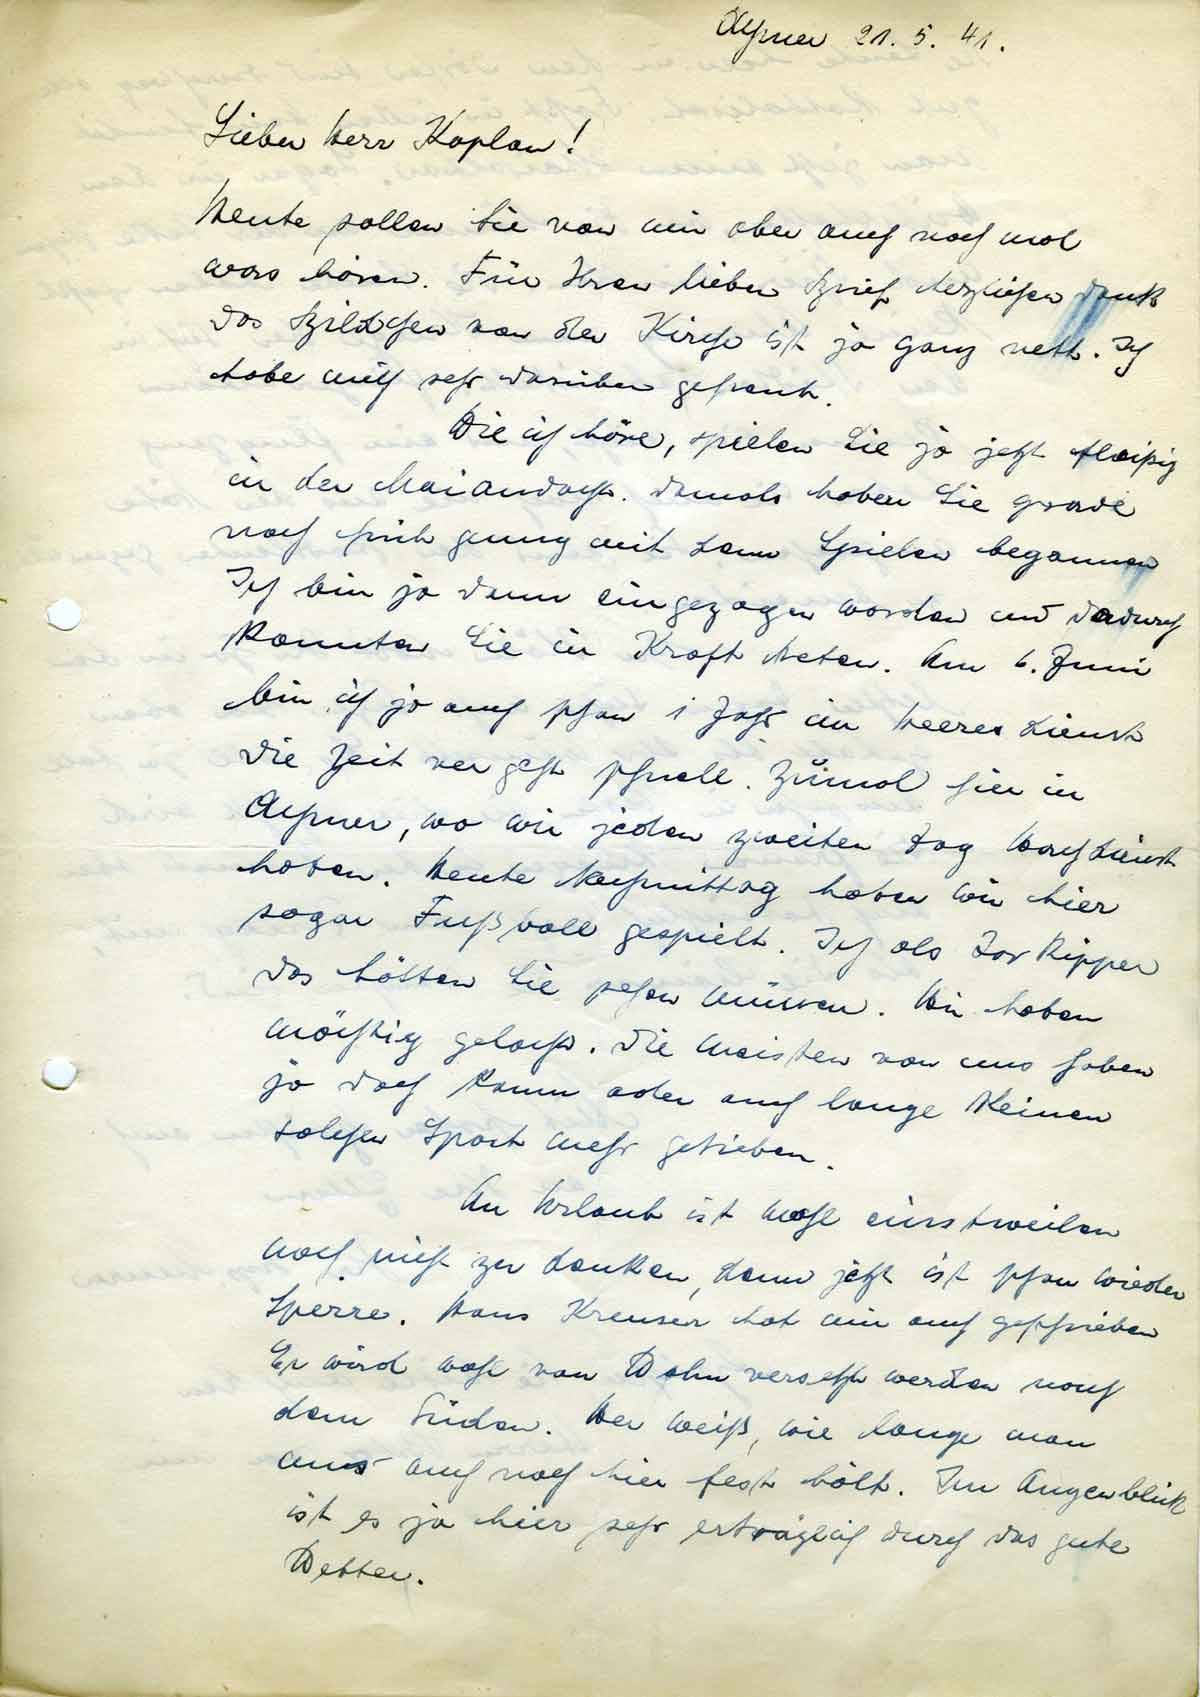 Achmer 21. 5. 41.
Lieber Herr Kaplan!
Heute sollen Sie von mir aber auch noch mal
was hören. Für Ihren lieben Brief herzlichen Dank
Das Bildchen von der Kirche ist ja ganz nett. Ich
habe mich sehr darüber gefreut.
Wie ich höre, spielen Sie ja jetzt fleißig
in der Maiandacht. Damals haben Sie grade
noch früh genug mit dem Spielen begonnen
Ich bin ja dann eingezogen worden und dadurch
konnten Sie in Kraft treten. Am 6. Juni
bin ich ja auch schon 1 Jahr im Heeresdienst
Die Zeit vergeht schnell. Zumal hier in
Achmer, wo wir jeden zweiten Tag Wachdienst
haben. Heute Nachmittag haben wir hier
sogar Fußball gespielt. Ich als Tor Kipper
Das hätten Sie sehen müssen. Wir haben
mächtig gelacht. Die meisten von uns haben
ja doch kaum oder auch lange keinen
solchen Sport mehr getrieben.
An Urlaub ist wohl einstweilen
noch nicht zu denken, denn jetzt ist schon wieder
Sperre. Hans Kreuser hat mir auch geschrieben
Er wird wohl von Wahn versetzt werden nach
dem Süden. Wer weiß, wie lange man
uns auch noch hier fest hält. Im Augenblick
ist es ja hier sehr erträglich durch das gute
Wetter.